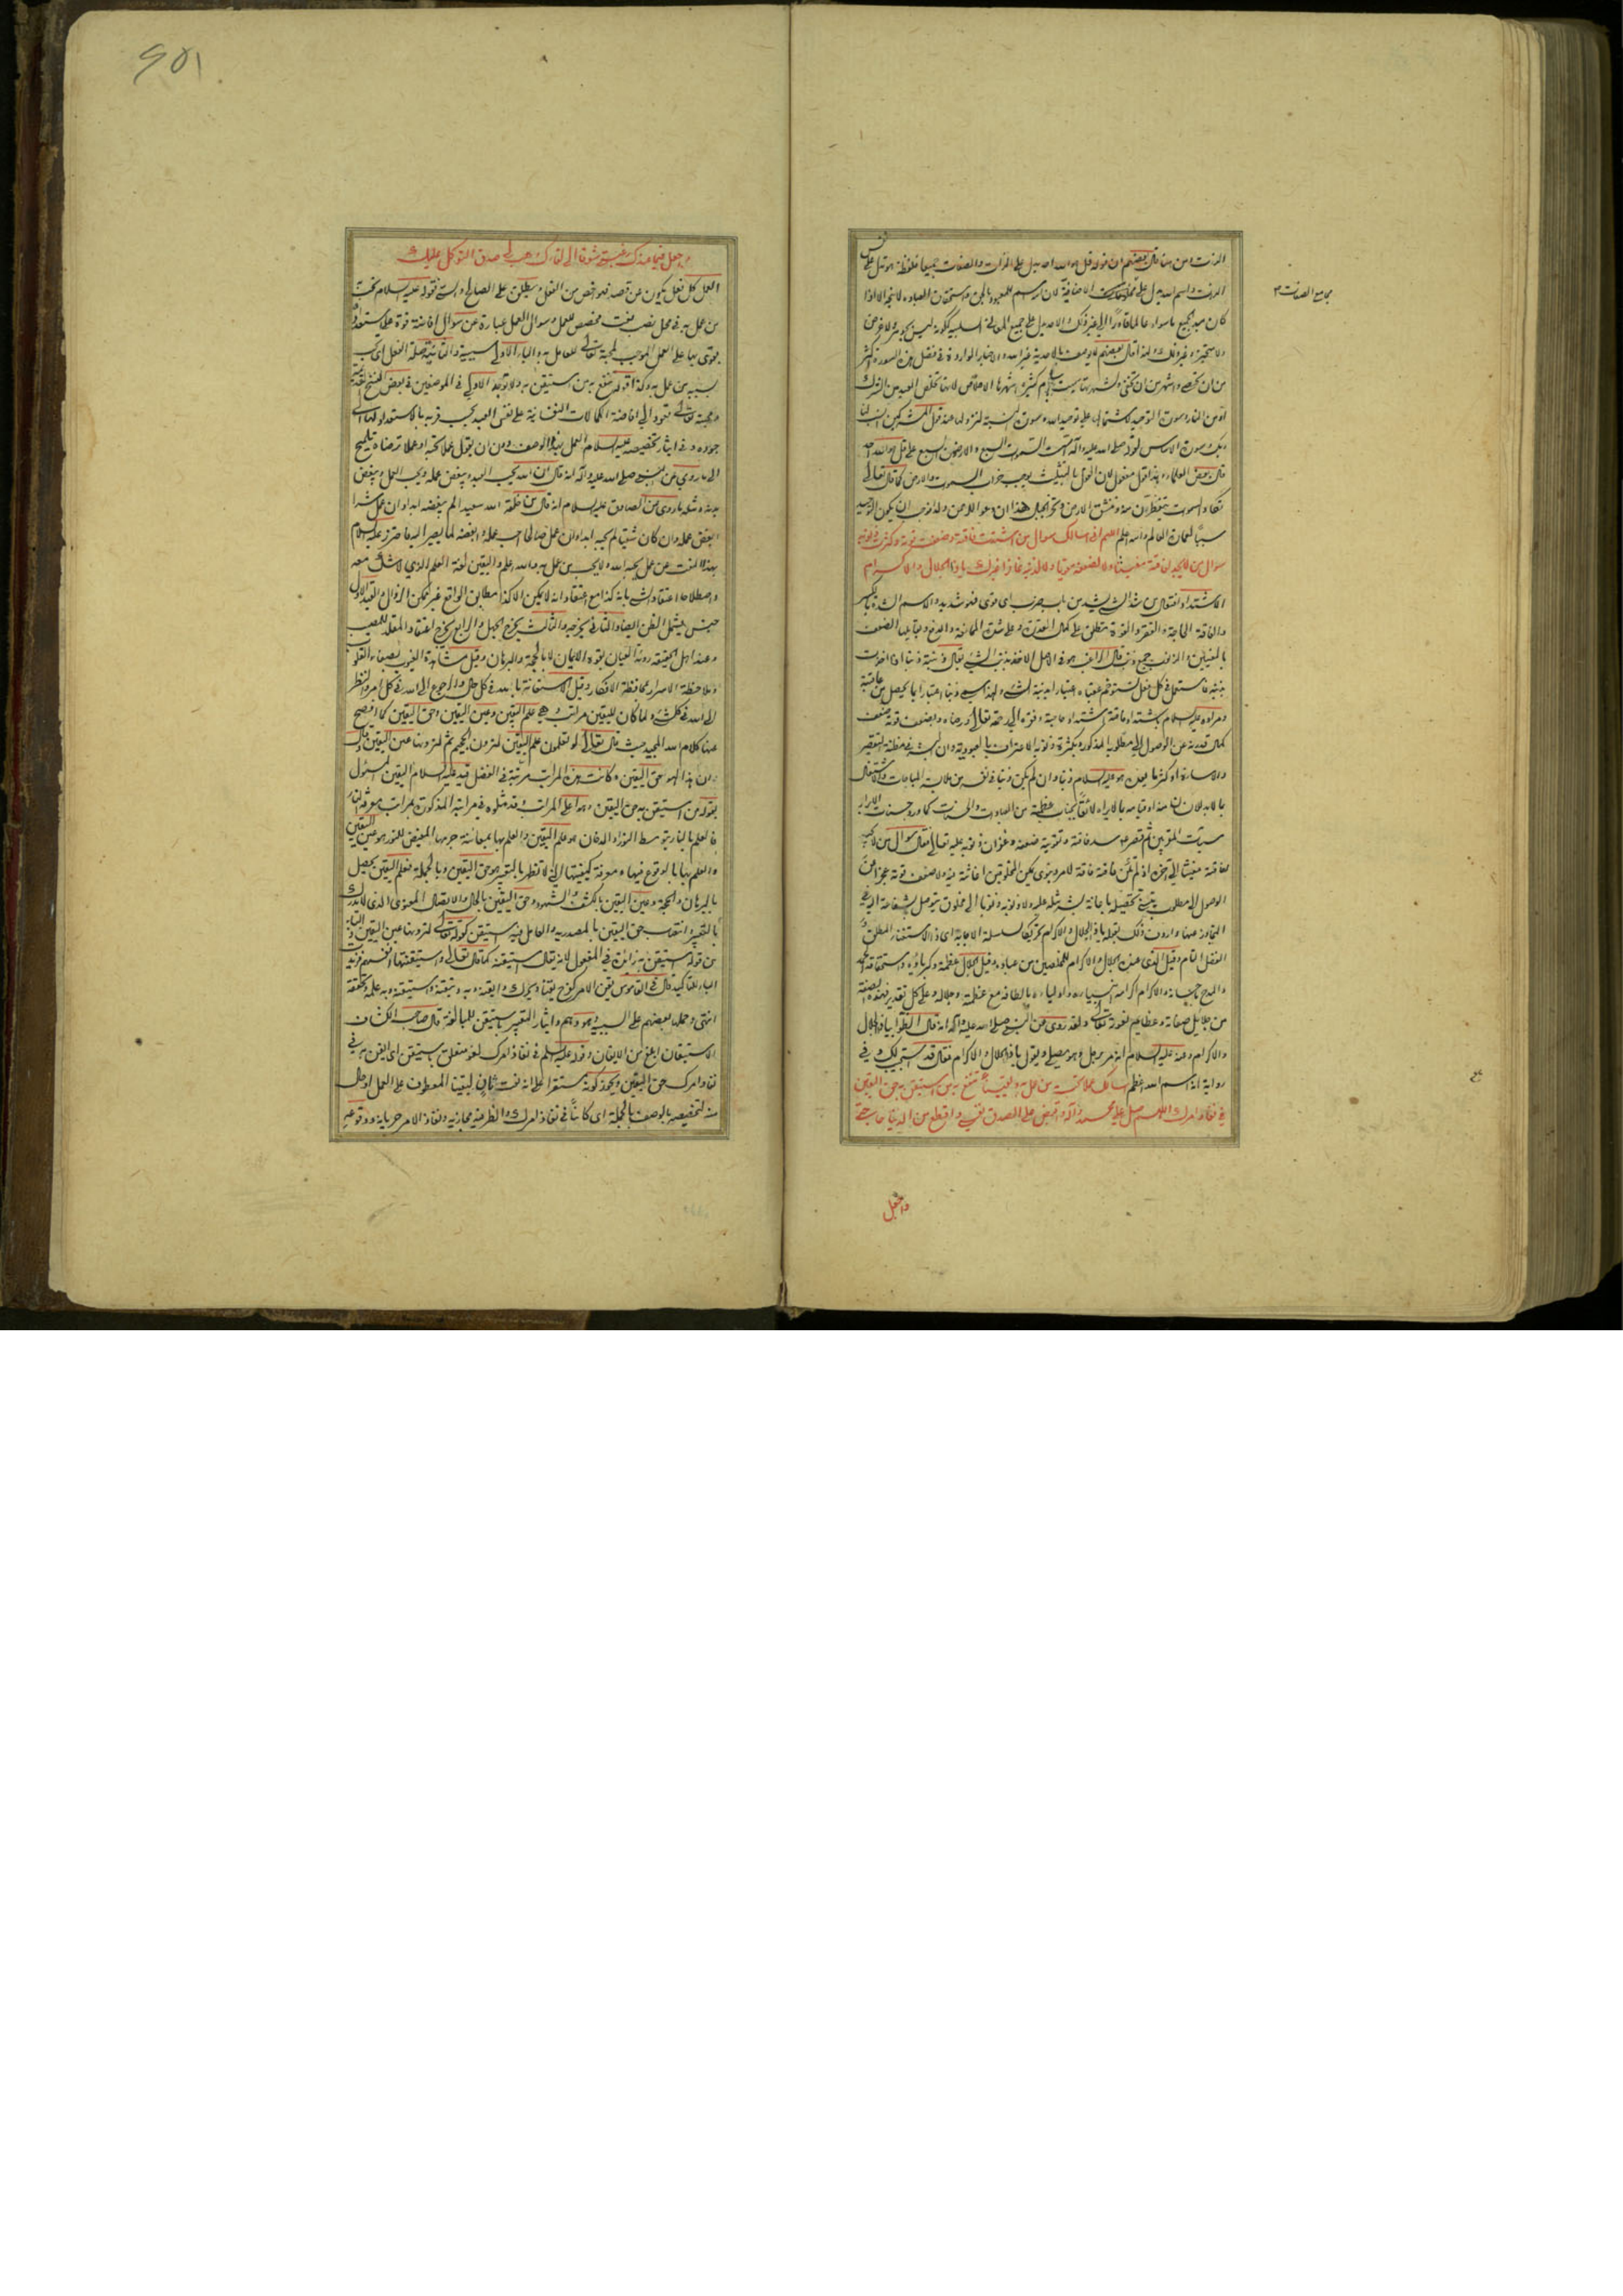 الذات ومن هنا قال بعضهم ان قوله قل هو الله احد يدل على الذات والصفات جميعا فلفظة هو تدل على نفس
الذات واسم الله يدل على مجامع الصفات الاضافية لانه اسم للمعبود بالحق واستحقاق العبادة لا يتجه الا اذا
مجامع الصفات
كان مبدأ لجميع ما سواه عالما قادرا الى غير ذلك والاحد يدل على جميع المعاني السلبية ككونه ليس بجوهر ولا عرض
ولا متحيز وغير ذلك ولهذا قال بعضهم لا يوصف بالاحدية غير الله والاخبار الواردة في فضل هذه السورة اكثر
من ان تحصى واشهر من ان تخفى ولشهرتها سميت باسام كثيرة اشهرها الاخلاص لانها تخلص العبد من الشرك
او من النار وسورة التوحيد لاشتمالها على توحيد الله وسورة النسبة لنزولها عند قول المشركين انسب لنا
ربك وسورة الاساس لقوله صلى الله عليه وآله اسست السموات السبع والارضون السبع على قل هو الله احد
قال بعض العلماء وهذا القول معقول لان القول بالتثليث يوجب خراب السموات والارض كما قال تعالى
تكاد السموات يتفطرن منه وتنشق الارض وتخر الجبال هدا ان دعوا للرحمن ولدا فوجب ان يكون التوحيد
سببا لعمارة العالم والله اعلم اللهم اني اسالك سوال من اشتدت فاقته وضعفت قوته وكثرت ذنوبه
سوال من لا يجد لفاقته مغيثا ولا لضعفه مقويا ولا لذنبه غافرا غيرك يا ذا الجلال والاكرام
الاشتداد افتعال من شد الشيء يشد من باب ضرب اي قوي فهو شديد والاسم الشدة بالكسر
والفاقة الحاجة والفقر والقوة تطلق على كمال القدرة وعلى شدة الممانعة والدفع ويقابلها الضعف
بالمعنيين والذنوب جمع ذنب قال الراغب هو في الاصل الاخذ بذنب الشيء يقال ذنبته ذنبا اذا اخذت
بذنبه فاستعمل في كل فعل تستوخم عقباه اعتبارا بذنب الشيء ولهذا يسمى ذنبا اعتبارا بما يحصل من عاقبته
ومراده عليه السلام باشتداد فاقته اشتداد حاجته وفقره الى رحمة تعالى ورضاه وبضعف قوته ضعف
كمال قدرته عن الوصول الى مطلوبه المذكور وبكثرة ذنوبه الاعتراف بالعبودية وان البشر في مظنة التقصير
بالابدان
سيئات المقربين ثم قصر عليه سد فاقته وتقوية ضعفه وغفران ذنوبه عليه تعالى فقال سوال من لا يجد
لفاقته مغيثا الى آخره اذ لم تكن فاقته فاقة لامر دنيوي يمكن المخلوقين اغاثته منه ولا ضعف قوته عجزا عن
الوصول الى مطلوب يتسنى تحصيله باعانة بشر مثله عليه ولا ذنوبه ذنوبا الى مخلوق يتوصل بشفاعة اليه في
التجاوز عنها واردف ذلك بقوله يا ذا الجلال والاكرام تحريكا لسلسلة الاجابة اي ذا الاستغناء المطلق و
الفضل التام وقيل الذي عنده الجلال والاكرام للمخلصين من عباده وقيل الجلال عظمته وكبرياؤه واستحقاقه الحمد
والمدح باحسانه والاكرام اكرامه انبيائه واوليائه بالطافه مع عظمته وجلاله وعلى كل تقدير فهذه الصفة
من جلايل صفاته وعظايم نعوته تعالى ولقد روي عن النبي صلى الله عليه وآله انه قال الظوا بيا ذا الجلال
والاكرام وعنه عليه السلام انه مر برجل وهو يصلي ويقول يا ذا الجلال والاكرام فقال قد استجيب لك وفي
رواية انه اسم الله اعظم اسالك عملا تحب به من عمل به ويقينا تنفع به من استيقن به حق اليقين
في نفاذ امرك اللهم صل على محمد وآله واقبض على الصدق نفسي واقطع من الدنيا حاجتي
واجعل
واجعل فيما عندك رغبتي شوقا الى لقائك وهب لي صدق التوكل عليك
العمل كل فعل يكون عن قصد فهو اخص من الفعل ويطلق على الصالح والسيئ قوله عليه السلام تحب
من عمل به في محل نصب نعت مخصص للعمل وسوال العمل عبارة عن سوال افاضة قوة على استعداده
يقوى بها على العمل الموجب لمحبة تعالى للعامل به والباء الاولى سببية والثانية صلة الفعل اي تحب
بسببه من عمل به وكذا قوله تنفع به من استيقن به ولا توجد الاولى في الموضعين في بعض النسخ
ومحبة تعالى تعود الى افاضة الكمالات النفسانية على نفس العبد بحسب قربه بالاستعداد لها الى
جوده وفي ايثار تخصيصه عليه السلام العمل بهذا الوصف دون ان يقول عملا تحبه او عملا ترضاه تلميح
الى ما روي عن النبي صلى الله عليه وآله انه قال ان الله يحب العبد ويبغض عمله ويحب العمل ويبغض
بدنه ومثله ما روي عن الصادق عليه السلام انه قال من خلقه الله سعيدا لم يبغضه ابدا وان عمل شرا
ابغض عمله وان كان شقيا لم يحبه ابدا وان عمل صالحا احب عمله وابغضه لما يصير اليه فاحترز عليه السلام
بهذا النعت عن عمل يحبه الله ولا يحب من عمل به والله اعلم واليقين لغة العلم الذي لا شك معه
واصطلاحا اعتقاد الشيء بانه كذا مع اعتقاد انه لا يمكن الا كذا مطابق للواقع غير ممكن الزوال والقيد الاول
جنس يشتمل الظن ايضا والثاني يخرجه والثالث يخرج الجهل والرابع يخرج اعتقاد المقلد المصيب
وعند اهل الحقيقة رؤية العيان بقوة الايمان لا بالحجة والبرهان وقيل مشاهدة الغيوب بصفاء القلوب
وملاحظة الاسرار بمحافظة الافكار وقيل الاستغاثة بالله في كل حال والرجوع الى الله في كل امر والنظر
الى الله في كل شيء ولما كان لليقين مراتب وهي علم اليقين وعين اليقين وحق اليقين كما افصح
عنها كلام الله المجيد حيث قال تعالى لو تعلمون علم اليقين لترون الجحيم ثم لترونها عين اليقين وقال
ان هذا لهو حق اليقين وكانت هذه المراتب مرتبة في الفضل قيد عليه السلام اليقين المسئول
بقوله من استيقن به حق اليقين وهو اعلى المراتب وقد مثلوه في مراتبه المذكورة بمراتب معرفة النار
فالعلم بالنار بتوسط النور والدخان هو علم اليقين والعلم بها بمعاينة جرمها المفيض للنور هو عين اليقين
والعلم بها بالوقوع فيها ومعرفة كيفيتها التي لا تظهر بالتعبير هو حق اليقين وبالجملة فعلم اليقين يحصل
بالبرهان والحجة وعين اليقين بالكشف والشهود وحق اليقين بالحال والاتصال المعنوي الذي لا يدرك
بالتعبير وانتصاب حق اليقين بالمصدرية والعامل فيه استيقن كقوله تعالى لترونها عين اليقين والباء
من قوله استيقن به زائدة في المفعول لانه يقال استيقنه كما قال تعالى واستيقنتها انفسهم فزيدت
الباء للتاكيد قال في القاموس يقن الامر كفرح يقنا ويحرك وايقنه وبه وتيقنه واستيقنه وبه علمه وتحققه
انتهى وحملها بعضهم على السببية وهو وهم وايثار التعبير باستيقن للمبالغة قال صاحب الكشاف
الاستيقان ابلغ من الايقان وقوله عليه السلام في نفاذ امرك لغو متعلق باستيقن اي ايقن به في
نفاذ امرك حق اليقين ويجوز كونه مستقرا على انه نعت ثان ليقينا المعطوف على العمل او حال
منه لتخصيصه بالوصف بالجملة اي كائنا في نفاذ امرك والظرفية مجازية ونفاذ الامر جريانه ووقوعه